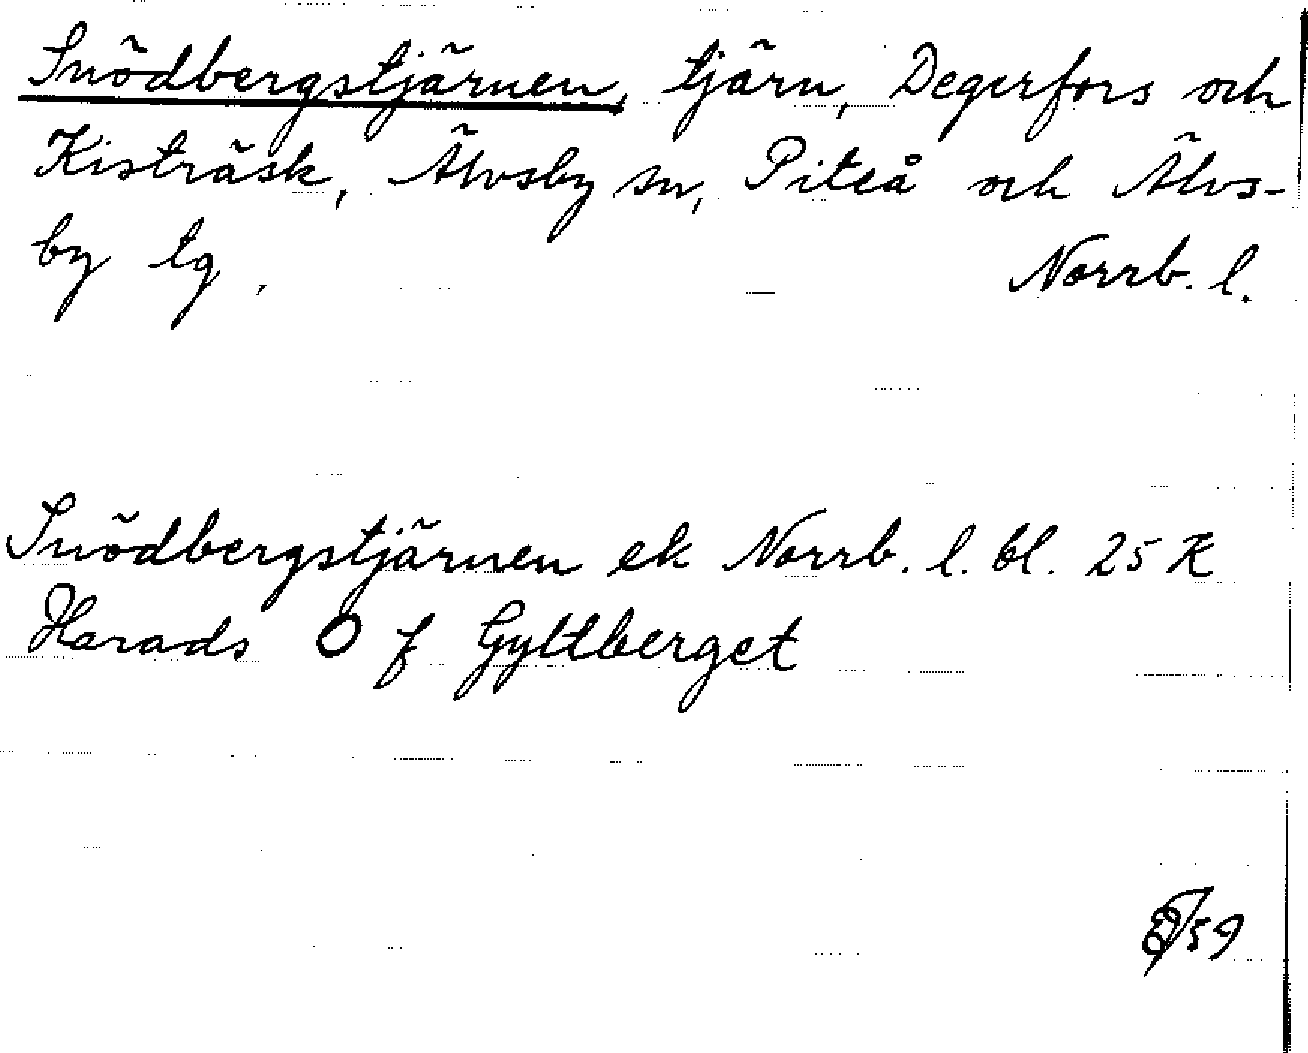 Snödbergstjärnen, tjärn, Degerfors och
Kisträsk, Älvsby sn, Piteå och Älvs-
by tg, Norrb. l.
Snödbergstjärnen ek Norrb. l. bl. 25 K
Harads O f Gyltberget
59